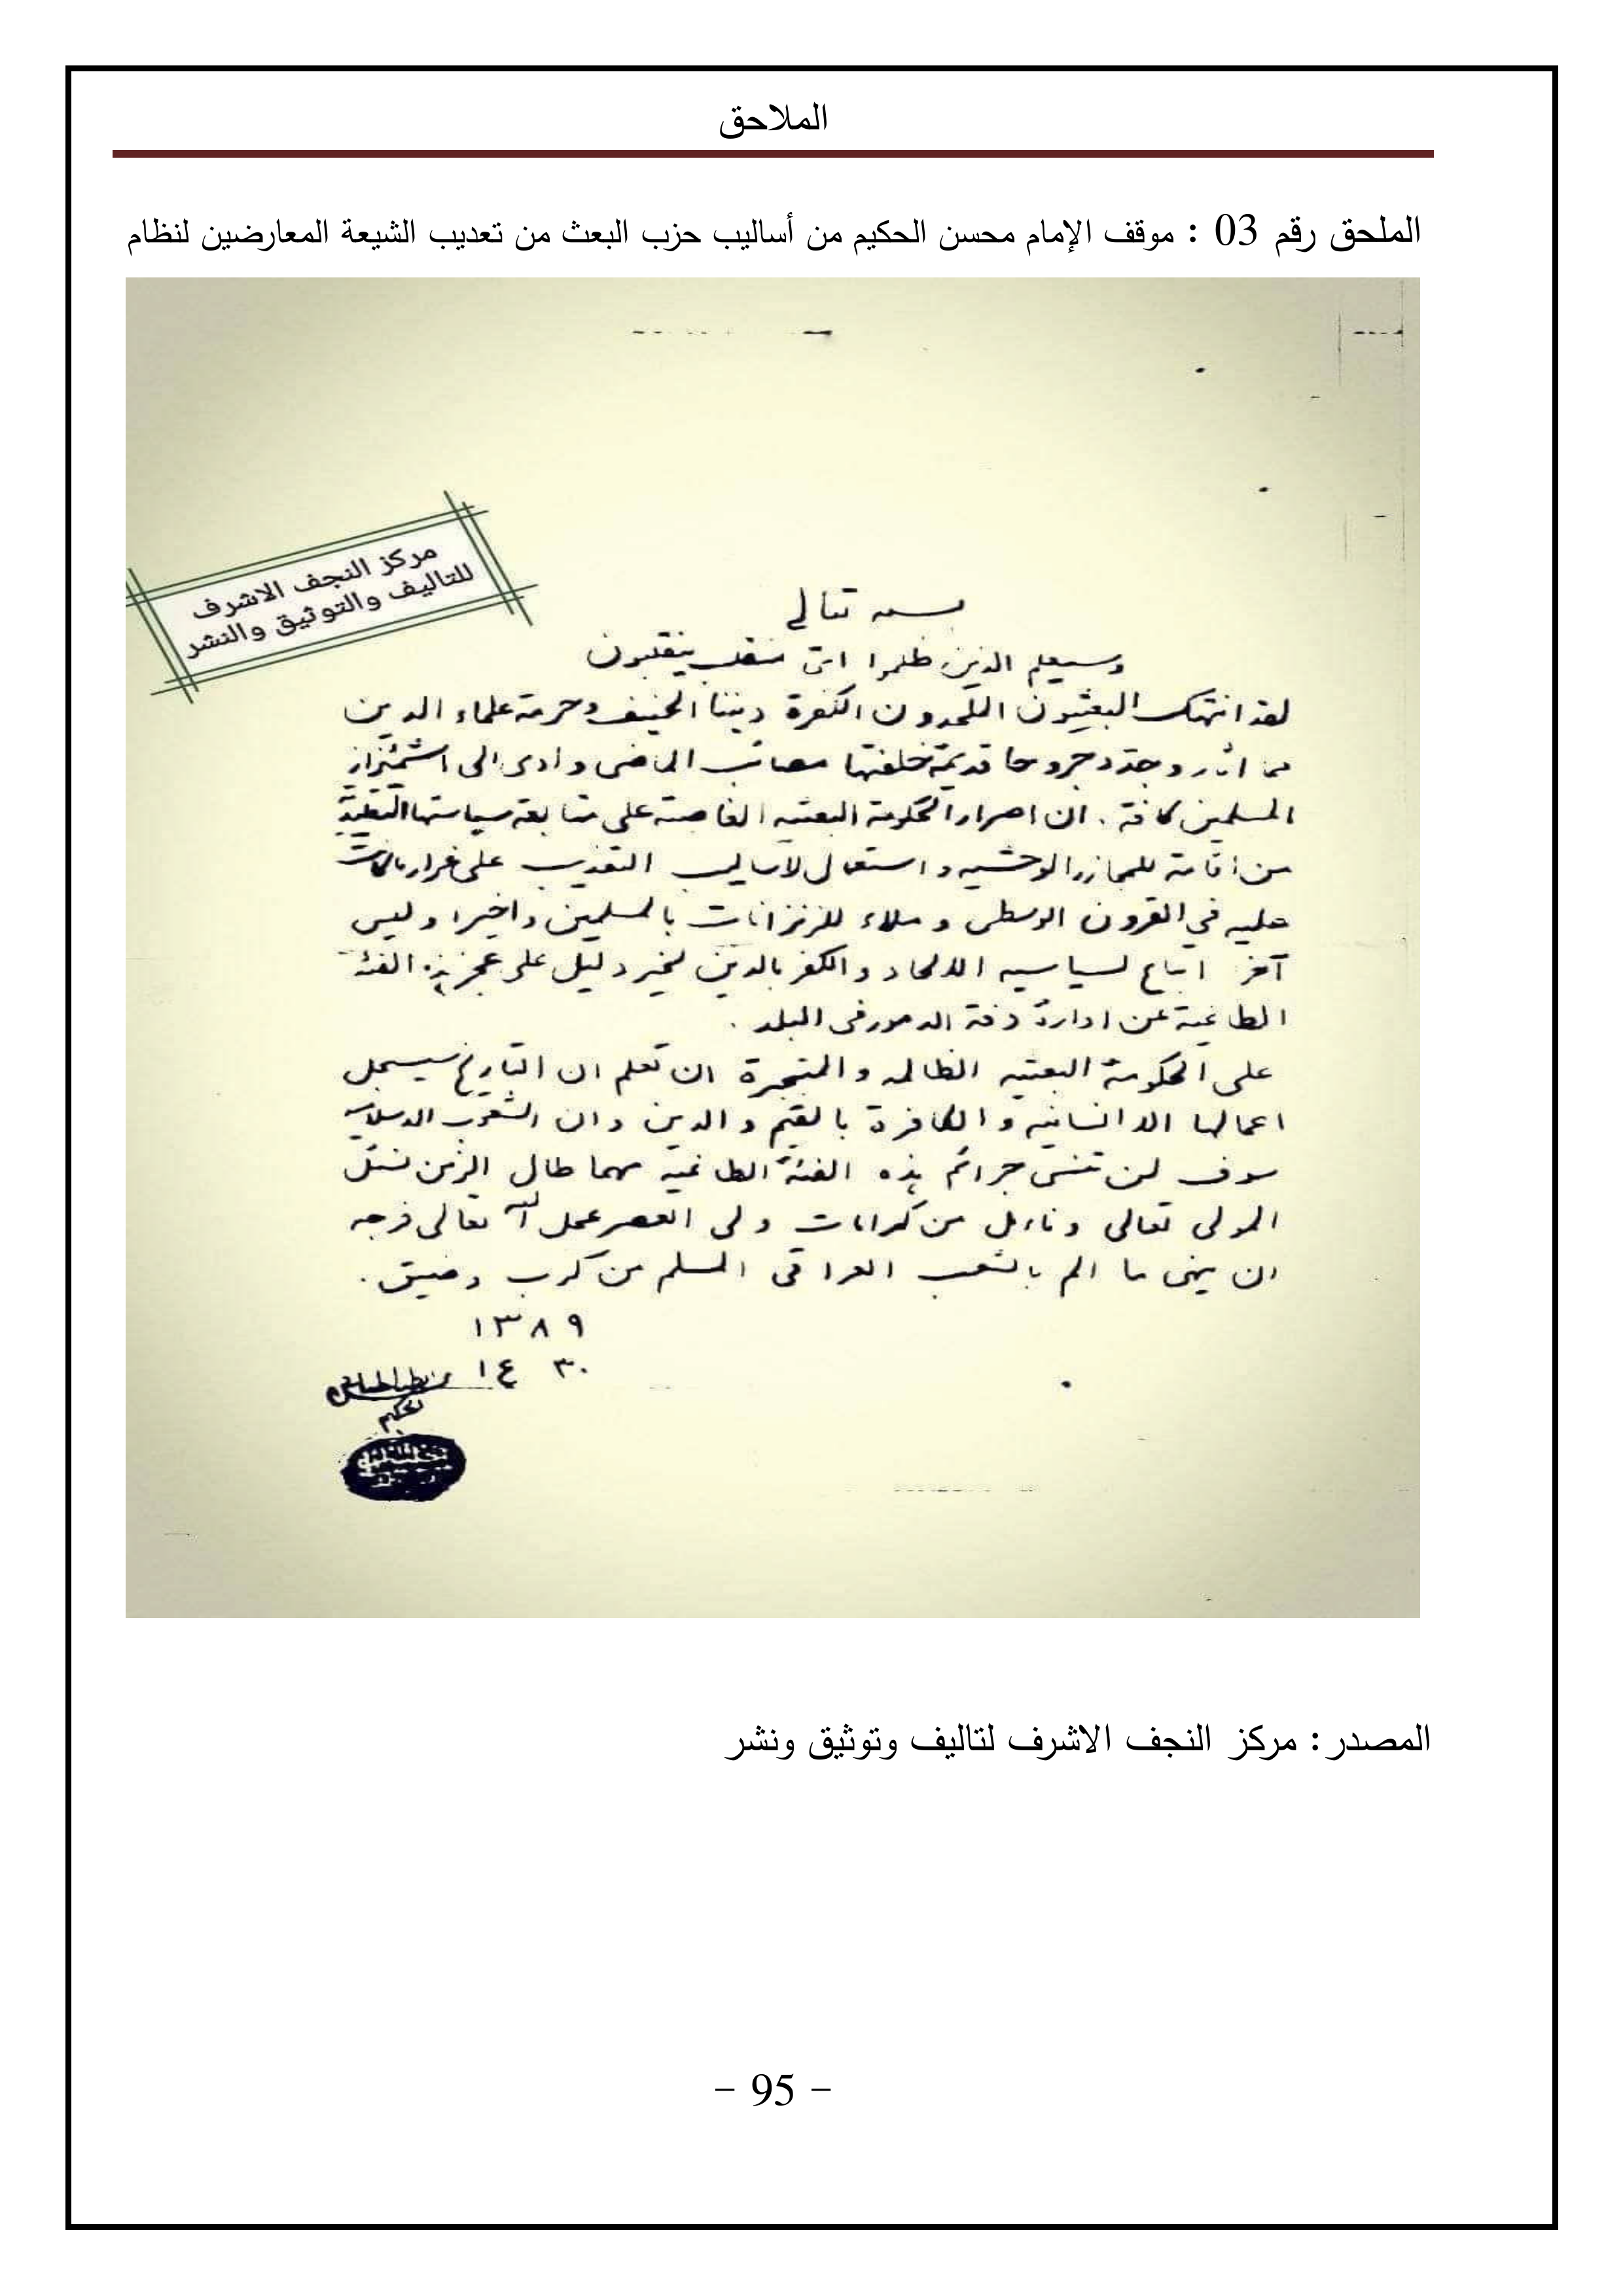 الملاحق
الملحق رقم 03 : موقف الإمام محسن الحكيم من أساليب حزب البعث من تعديب الشيعة المعارضين لنظام
مركز النجف الاشرف
للتاليف والتوثيق والنشر
بسمه تعالى
وسيعلم الذين ظلموا اي منقلب ينقلبون
لقد انتهك البعثيون الملحدون الكفرة ديننا الحنيف وحرمة علماء الدين
مما اثار وجدد جروحا قديمة خلفتها مصائب الماضي وادى الى اشمئزاز
المسلمين كافة . ان اصرار الحكومة البعثيه الغاصبة على متابعة سياستها
من اقامة للمجازر الوحشيه واستعمال لأساليب التعذيب على غرار ما كانت
عليه في القرون الوسطى وملاء للزنزانات بالمسلمين واخيرا وليس
آخر اتباع لسياسيه الالحاد والكفر بالدين لخير دليل على عجز هذه الفئة
الطاغية عن ادارة دفة الامور في البلد .
على الحكومة البعثيه الظالمه والمتجبرة ان تعلم ان التاريخ سيسجل
اعمالها الا انسانيه و الكافرة بالقيم و الدين وان الشعوب الاسلاميه
سوف لن تنسى جرائم هذه الفئة الطاغيه مهما طال الزمن نسئل
المولى تعالى ونأمل من كرامات ولي العصر عجل الله تعالى فرجه
ان ينهي ما الم بالشعب العراقي المسلم من كرب وضيق .
١٣٨٩
٣٠ ع١
الطباطبائي
الحكيم
المصدر : مركز النجف الاشرف لتاليف وتوثيق ونشر
- 95 -